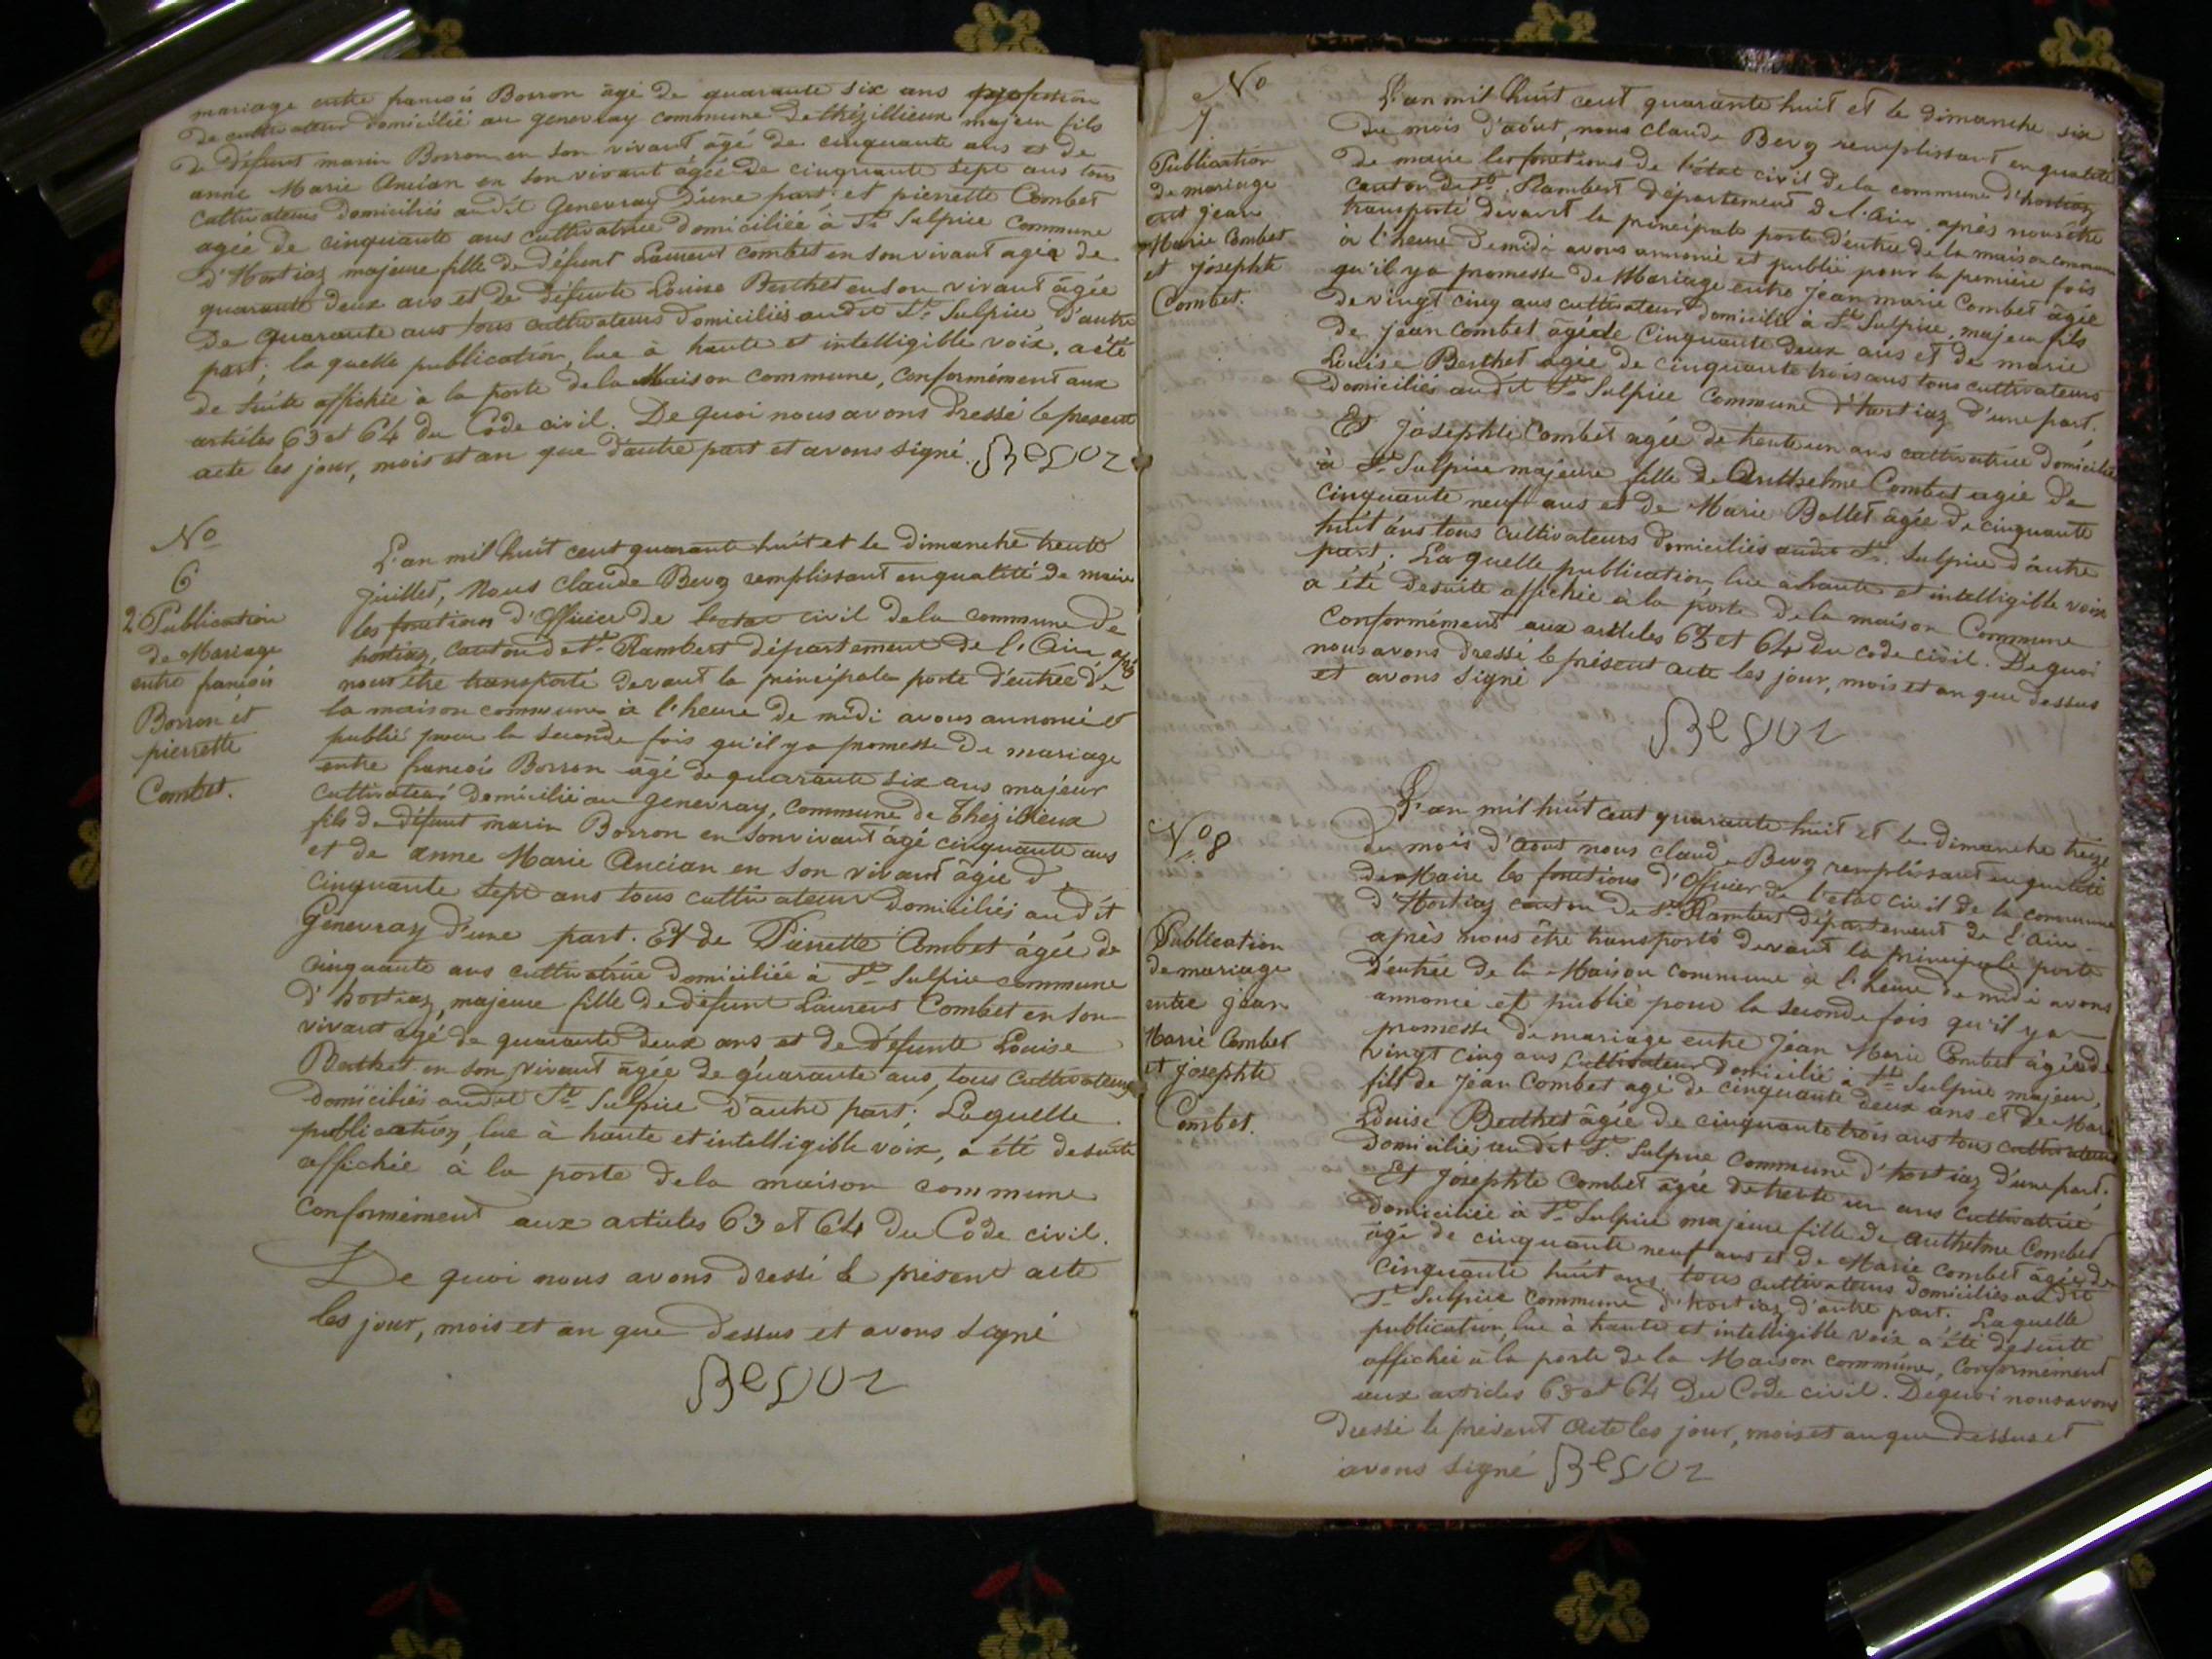 mariage entre francois Borron âgé de quarante six ans profession
de cultivateur domicilié au genevray commune de thézillieux majeur fils
de défunt marin Borron en son vivant âgé de cinquante ans et de
anne Marie Ancian en son vivant âgée de cinquante sept ans tous
cultivateurs domiciliés audit Genevray d'une part; et pierrette Combet
agée de cinquante ans cultivatrice domiciliée à St. Sulpice Commune
d'Hortiaz majeure fille de défunt Laurent combet en son vivant agée de
quarante deux ans et de défunte Louise Berthet en son vivant âgée
de quarante ans tous cultivateurs domiciliés audit St. Sulpice, d'autre
part; la quelle publication, lue à haute et intelligible voix, a été
de suite affichée à la porte de la Maison commune, conformément aux
articles 63 et 64 du Code civil. De quoi nous avons dressé le present
acte les jour, mois et an que d'autre part et avons signé.
No
6
2e Publication
de Mariage
entre francois
Borron et
pierrette
Combet.
L'an mil huit cent quarante huit et le dimanche trente
juillet, Nous claude Berg remplissant en qualité de maire
les fonctions d'Officier de l'état civil de la commune de
hortiaz, canton de St. Rambert département de l'Ain après
nous être transporté devant la principale porte d'entrée de
la maison commune à l'heure de midi avons annoncé et
publié pour la seconde fois qu'il y a promesse de mariage
entre francois Borron âgé de quarante six ans majeur
cultivateur domicilié au genevray, commune de thézillieux
fils de défunt marin Borron en son vivant âgé cinquante ans
et de anne Marie Ancian en son vivant âgée d
cinquante sept ans tous cultivateurs domiciliés audit
Genevray d'une part. Et de Pierrette Combet âgée de
cinquante ans cultivatrice domiciliée à St. Sulpice commune
d'hortiaz, majeure fille de défunt Laurent Combet en son
vivant agé de quarante deux ans et de défunte Louise
Berthet en son vivant âgée de quarante ans, tous cultivateurs
domiciliés audit St. Sulpice d'autre part; Laquelle
publication, lue à haute et intelligible voix, a été de suite
affichée à la porte de la maison commune
conformément aux articles 63 et 64 du Code civil.
De quoi nous avons dressé le présent acte
les jour, mois et an que dessus et avons signé
No
7
Publication
de mariage
entre jean
Marie Combet
et josephte
Combet.
L'an mil huit cent quarante huit et le dimanche six
du mois d'août, nous claude Berg remplissant en qualité
de maire les fonctions de l'état civil de la commune d'hortiaz
canton de St. Rambert département de l'Ain, après nous être
transporté devant la principale porte d'entrée de la maison commune
à l'heure de midi avons annoncé et publié pour la première fois
qu'il y a promesse de Mariage entre jean marie Combet âgée
de vingt cinq ans cultivateur domicilié à St. Sulpice, majeur fils
de jean Combet âgé de cinquante deux ans et de marie
Louise Berthet âgée de cinquante trois ans tous cultivateurs
domiciliés audit St. Sulpice Commune d'hortiaz d'une part.
Et josephte Combet agée de trente un ans cultivatrice domiciliée
à St. Sulpice majeure fille de Anthelme Combet agée de
cinquante neuf ans et de Marie Ballet âgée de cinquante
huit ans tous cultivateurs domiciliés audit St. Sulpice d'autre
part; La quelle publication, lue à haute et intelligible voix
a été desuite affichée à la porte de la maison Commune
conformément aux articles 63 et 64 du code civil. De quoi
nous avons dressé le présent acte les jour, mois et an que dessus
et avons signé
No. 8
Publication
de mariage
entre jean
Marie Combet
et josephte
Combet.
L'an mil huit cent quarante huit et le dimanche treize
du mois d'aout nous claude Berg remplissant en qualité
de Maire les fonctions d'Officier de l'état civil de la commune
d'Hortiaz canton de St. Rambert département de l'Ain.
après nous être transporté devant la principale porte
d'entrée de la Maison commune à l'heure de midi avons
annoncé et publié pour la seconde fois qu'il y a
promesse de mariage entre Jean Marie Combet âgée de
vingt cinq ans Cultivateur domicilié à St. Sulpice majeur,
fils de jean Combet agé de cinquante deux ans et de Marie
Louise Berthet âgée de cinquante trois ans tous cultivateurs
domiciliés audit St. Sulpice Commune d'hortiaz d'une part;
Et josephte Combet âgée de trente un ans cultivatrice
domiciliée à St. Sulpice majeure fille de anthelme Combet
âgé de cinquante neuf ans et de Marie Combet âgée de
cinquante huit ans, tous cultivateurs domiciliés audit
St. Sulpice commune d'hortiaz d'autre part. Laquelle
publication, lue à haute et intelligible voix a été desuite
affichée à la porte de la Maison commune, conformément
aux articles 63 et 64 du Code civil. De quoi nous avons
dressé le présent acte les jour, mois et an que dessus et
avons signé